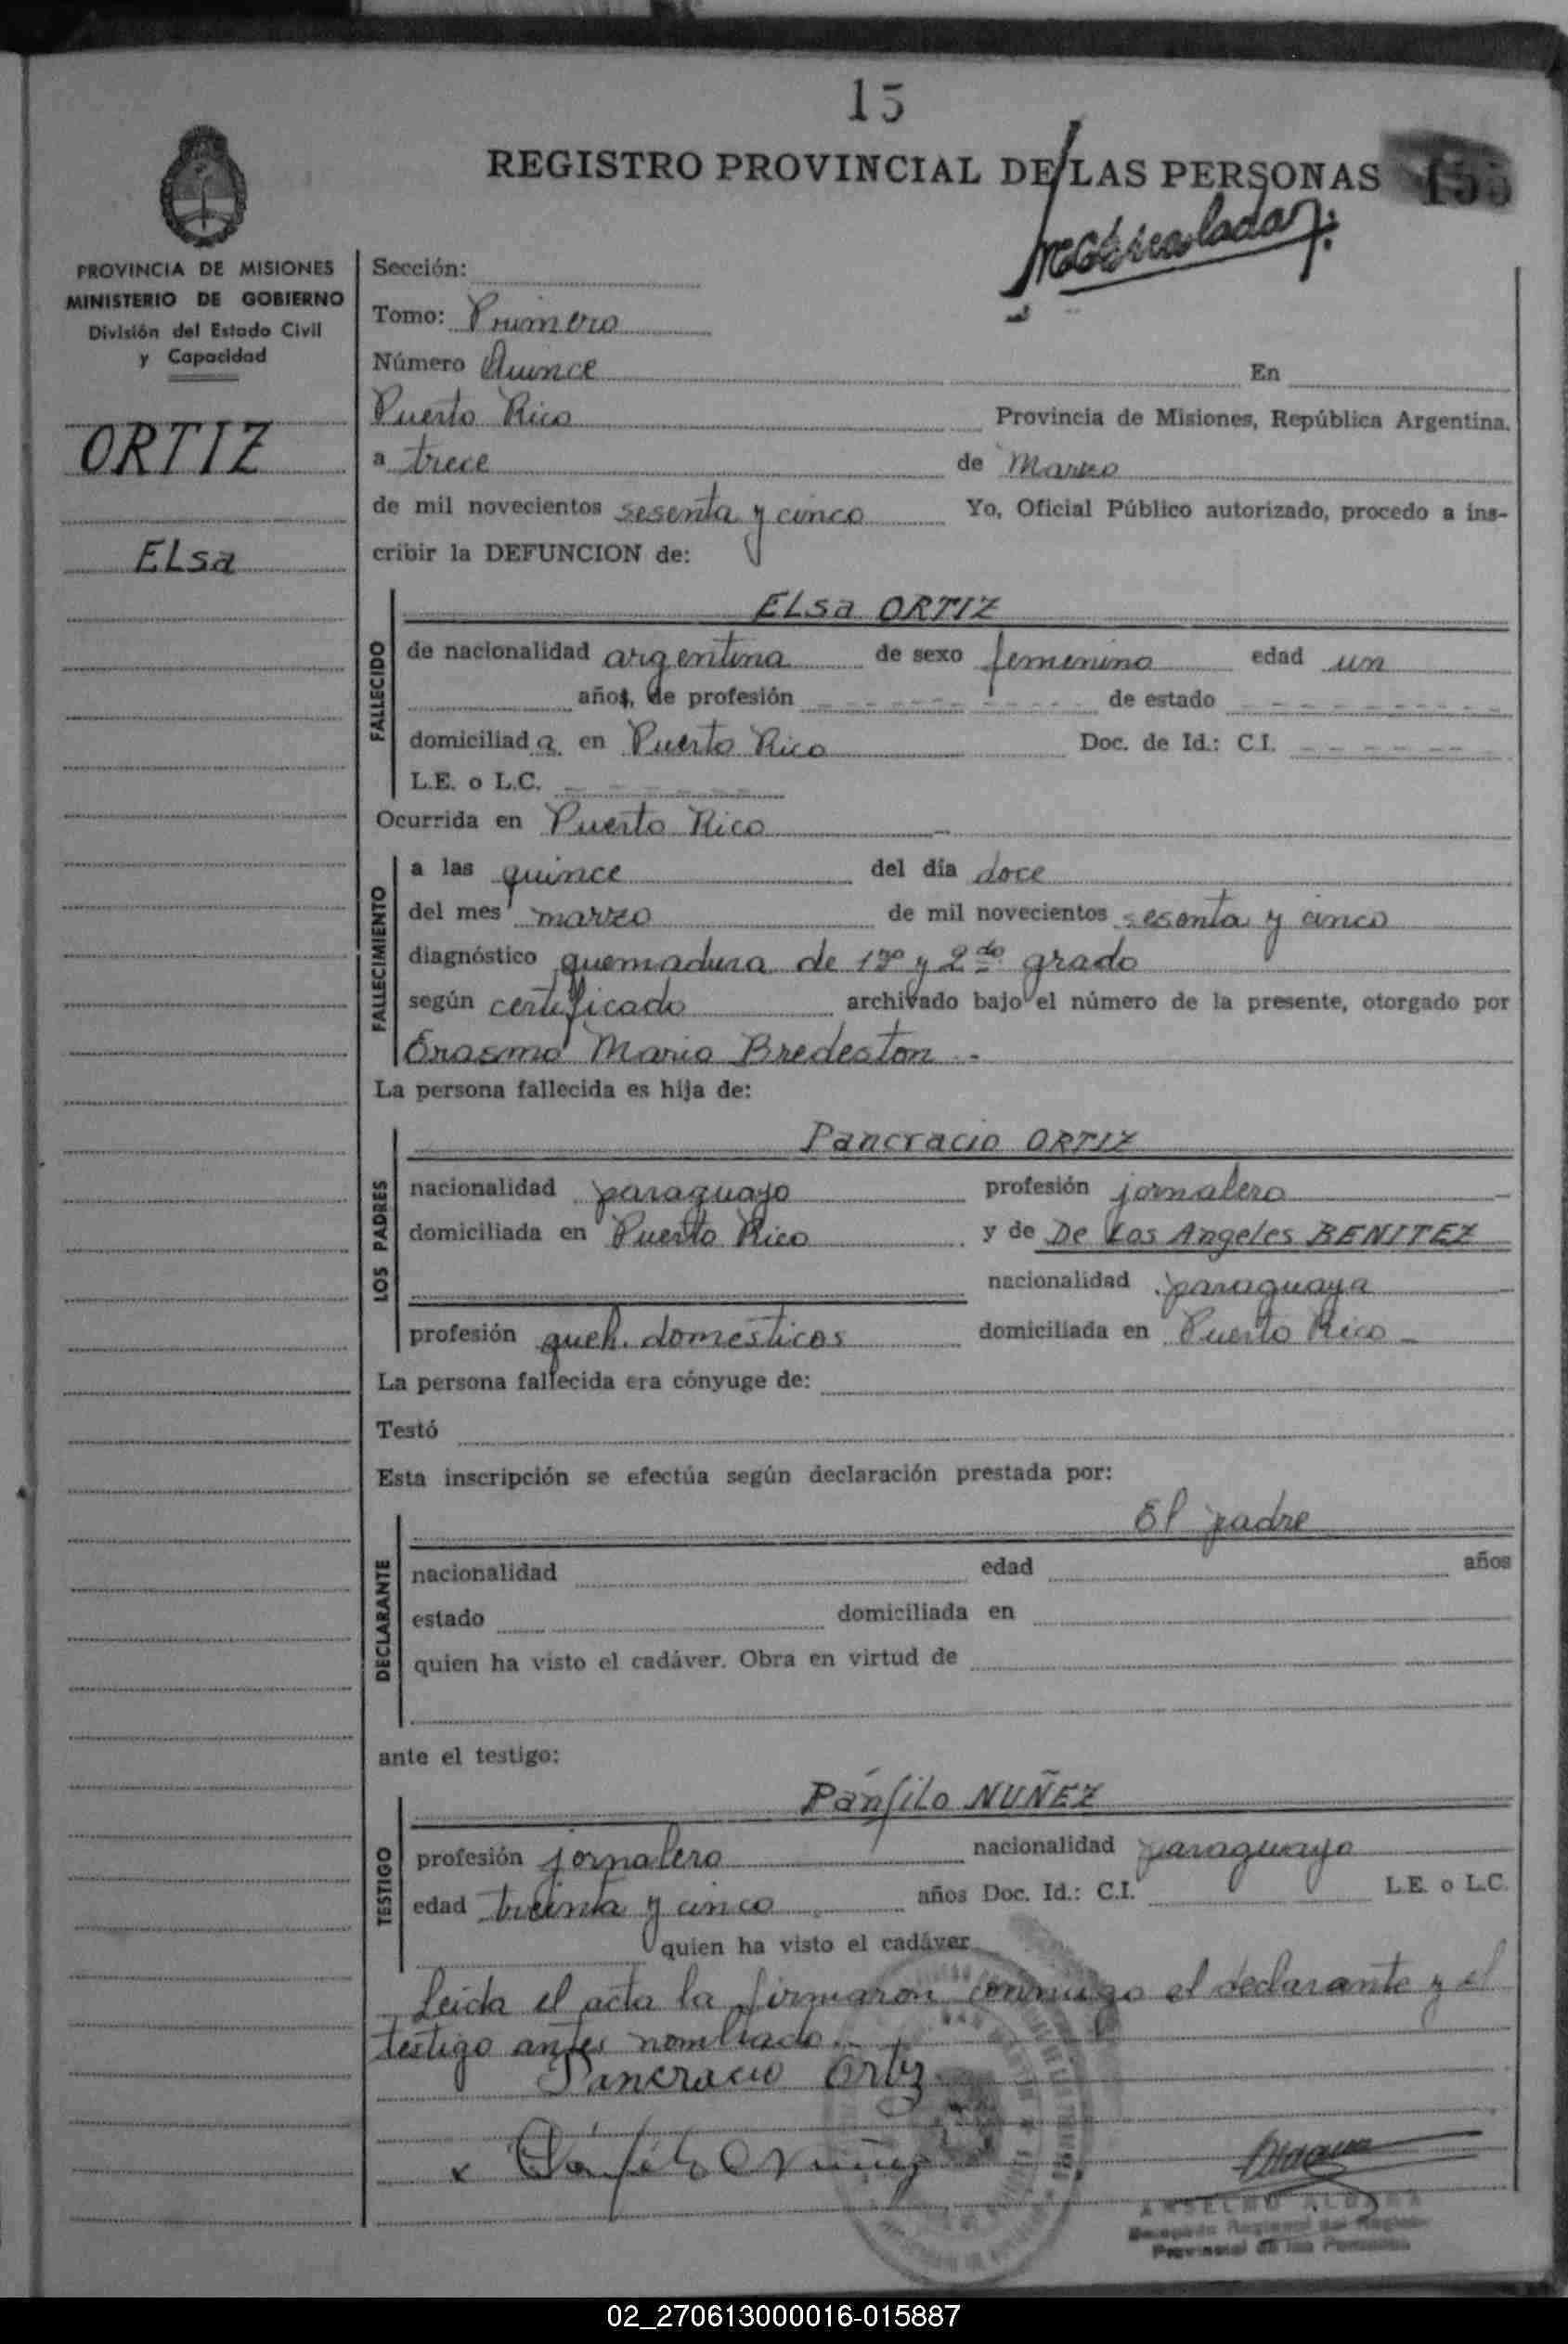 15
REGISTRO PROVINCIAL DE LAS PERSONAS 155
PROVINCIA DE MISIONES
MINISTERIO DE GOBIERNO
División del Estado Civil
y Capacidad
ORTIZ
ELsa
Sección:
Tomo: Primero
Número Quince En
Puerto Rico Provincia de Misiones, República Argentina.
a trece de Marzo
de mil novecientos sesenta y cinco Yo, Oficial Público autorizado, procedo a ins-
cribir la DEFUNCION de:
FALLECIDO
ELsa ORTIZ
de nacionalidad argentina de sexo femenino edad un
años, de profesión de estado
domiciliada en Puerto Rico Doc. de Id.: C.I.
L.E. o L.C.
Ocurrida en Puerto Rico
FALLECIMIENTO
a las quince del día doce
del mes marzo de mil novecientos sesenta y cinco
diagnóstico quemadura de 1ro y 2do grado
según certificado archivado bajo el número de la presente, otorgado por
Erasmo Mario Bredeston.-
La persona fallecida es hija de:
LOS PADRES
Pancracio ORTIZ
nacionalidad paraguayo profesión jornalero
domiciliada en Puerto Rico y de De Los Angeles BENITEZ
nacionalidad paraguaya
profesión queh. domesticos domiciliada en Puerto Rico-
La persona fallecida era cónyuge de:
Testó
Esta inscripción se efectúa según declaración prestada por:
DECLARANTE
El padre
nacionalidad edad años
estado domiciliada en
quien ha visto el cadáver. Obra en virtud de
ante el testigo:
TESTIGO
Pánfilo NUÑEZ
profesión jornalero nacionalidad paraguayo
edad treinta y cinco años Doc. Id.: C.I. L.E. o L.C.
quien ha visto el cadáver
Leida el acta la firmaron conmigo el declarante y el
testigo antes nombrado.-
Pancracio Ortiz
x Pánfilo Nuñez
Provincial de las Personas
02_270613000016-015887